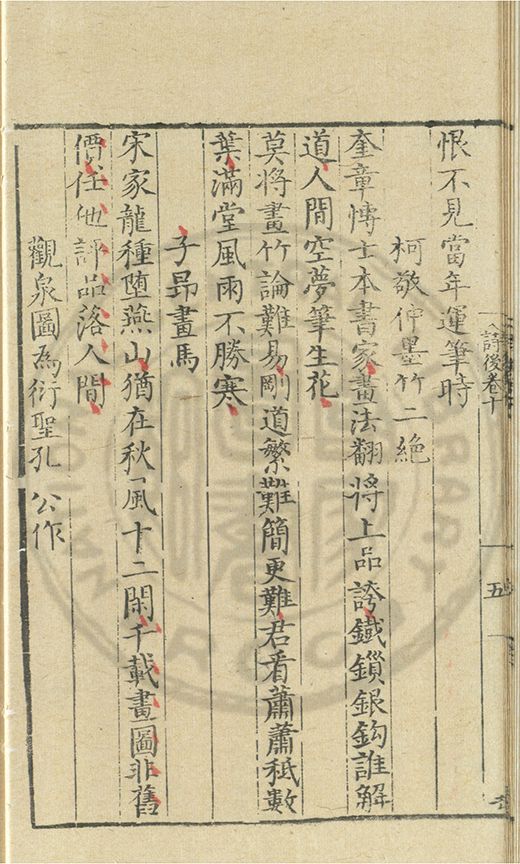 恨不見當年運筆時
柯敬仲墨竹二絶
奎章愽士本書家畫法翻將上品誇鐵鎖銀鈎誰解
道人間空夢筆生花
莫將畫竹論難易剛道繁難簡更難君看蕭蕭秪數
葉滿堂風雨不勝寒
子昻畫馬
宋家龍種墮燕山猶在秋風十二閑千載畫圖非舊
價任他評品落人間
觀泉圖為衍聖孔 公作
詩後卷十
五